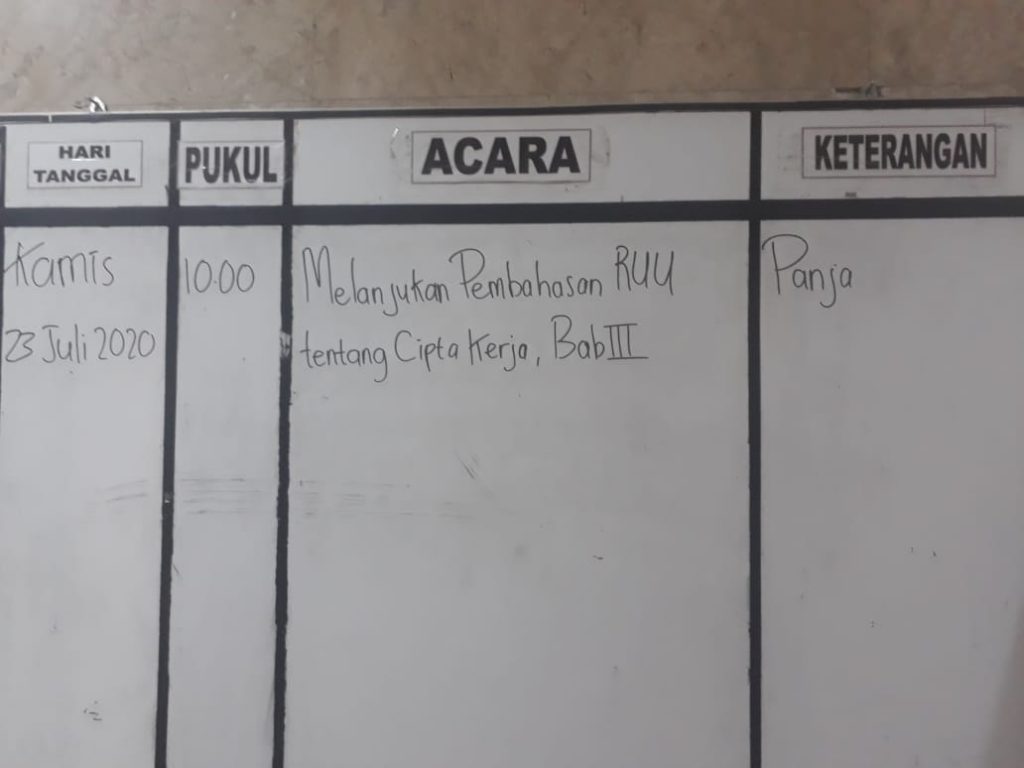 HARI
TANGGAL
PUKUL
ACARA
KETERANGAN
Kamis
23 Juli 2020
10.00
Melanjukan Pembahasan RUU
tentang Cipta Kerja, Bab III
Panja